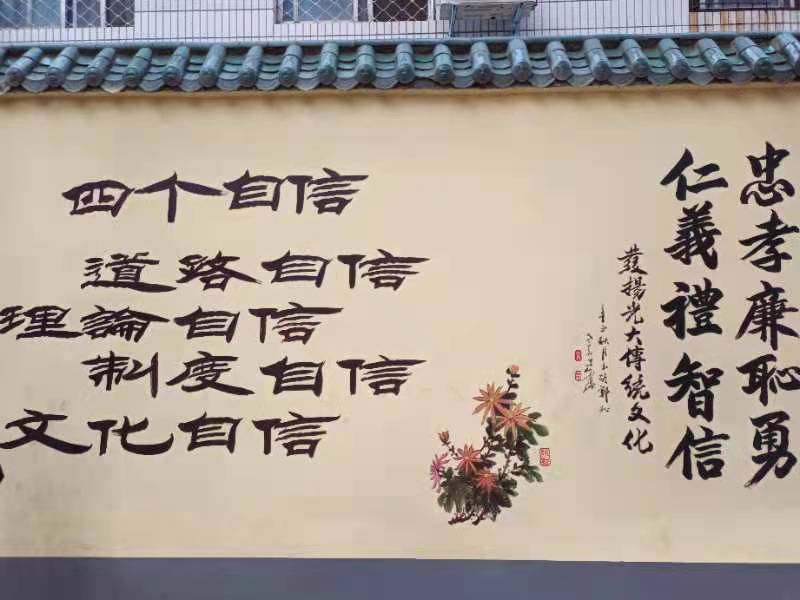 四个自信
道路自信
理論自信
制度自信
文化自信
忠孝廉恥勇
仁義禮智信
發揚光大傳統文化